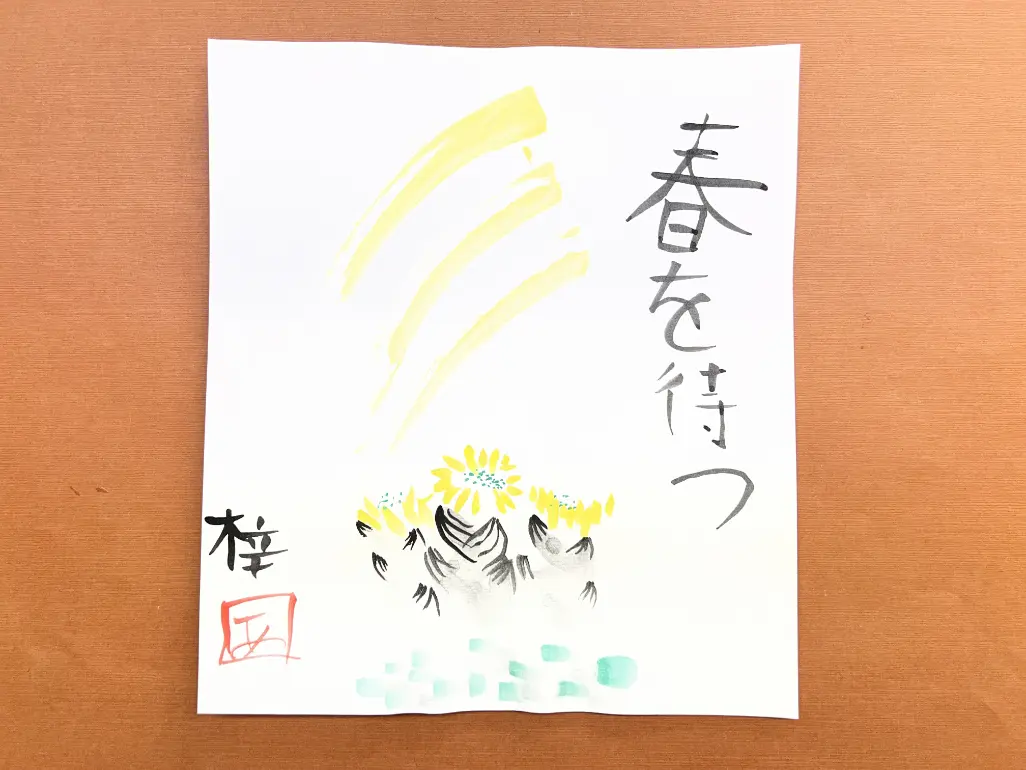 春を待つ
梓
あ